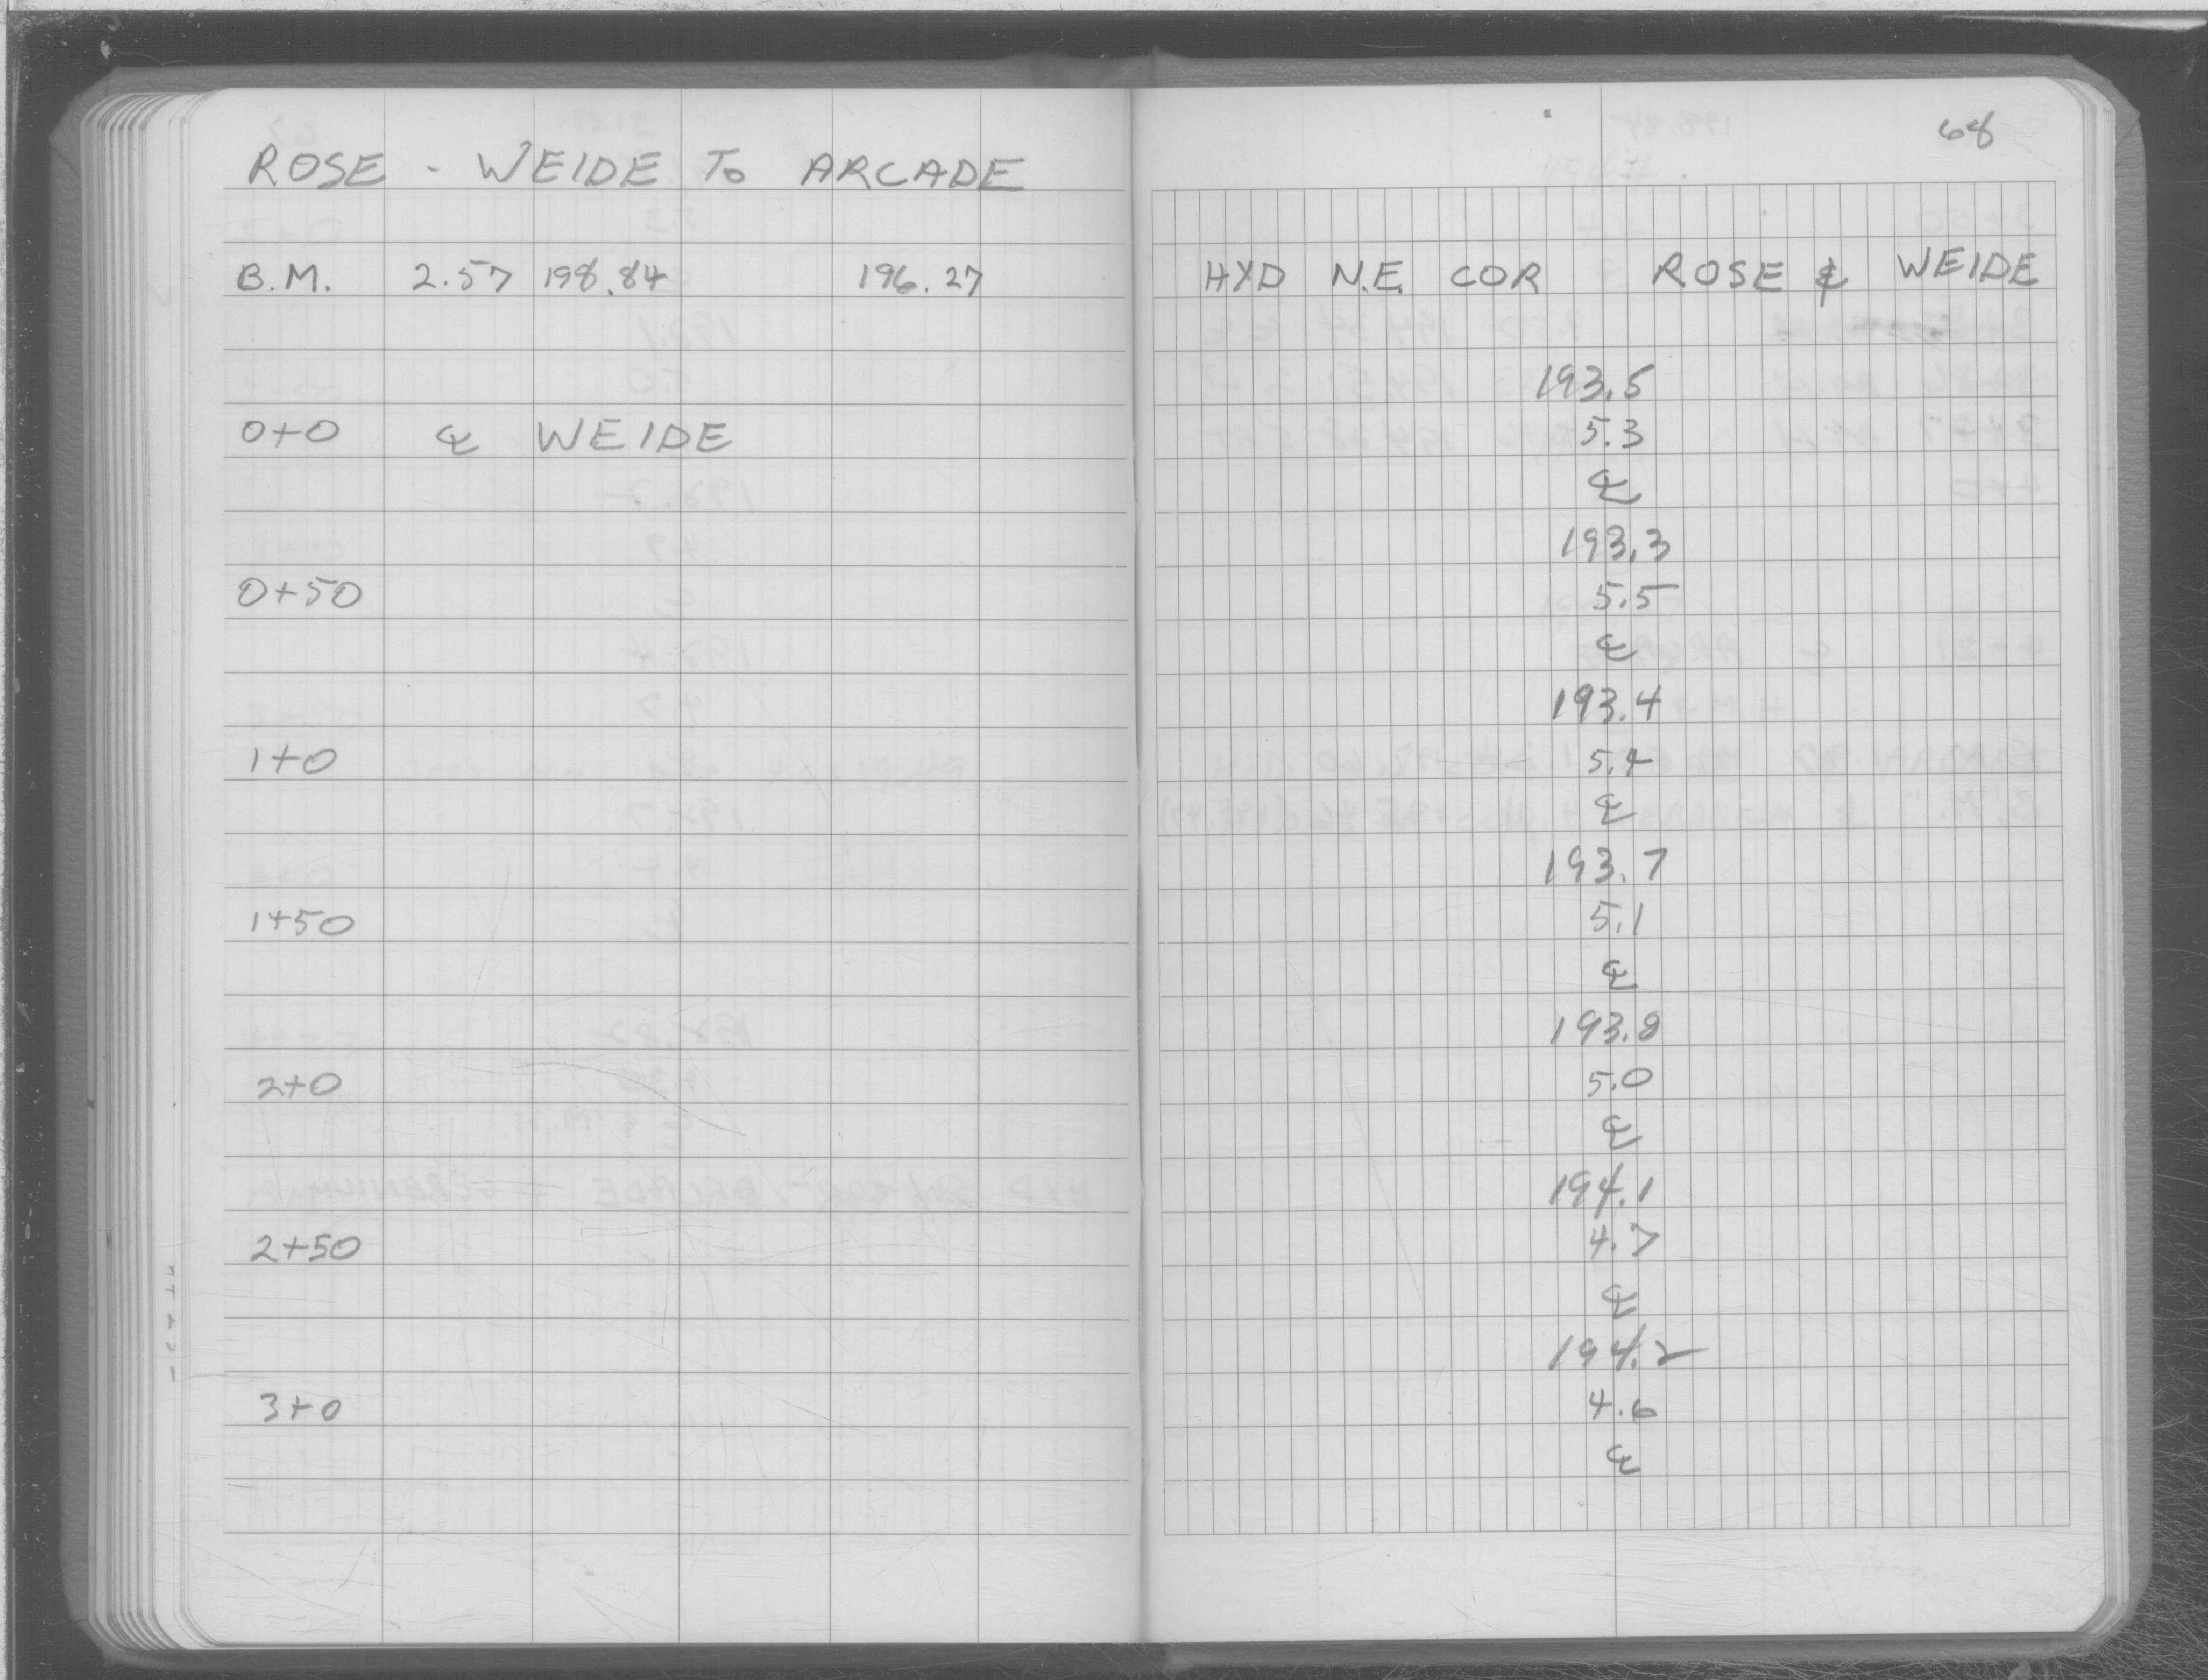 68
ROSE - WEIDE To ARCADE
B.M. 2.57 198.84 196.27 HYD N.E. COR ROSE & WEIDE
193.5
0+0 ℄ WEIDE 5.3
℄
193.3
0+50 5.5
℄
193.4
1+0 5.4
℄
193.7
1+50 5.1
℄
193.8
2+0 5.0
℄
194.1
2+50 4.7
℄
194.2
3+0 4.6
℄